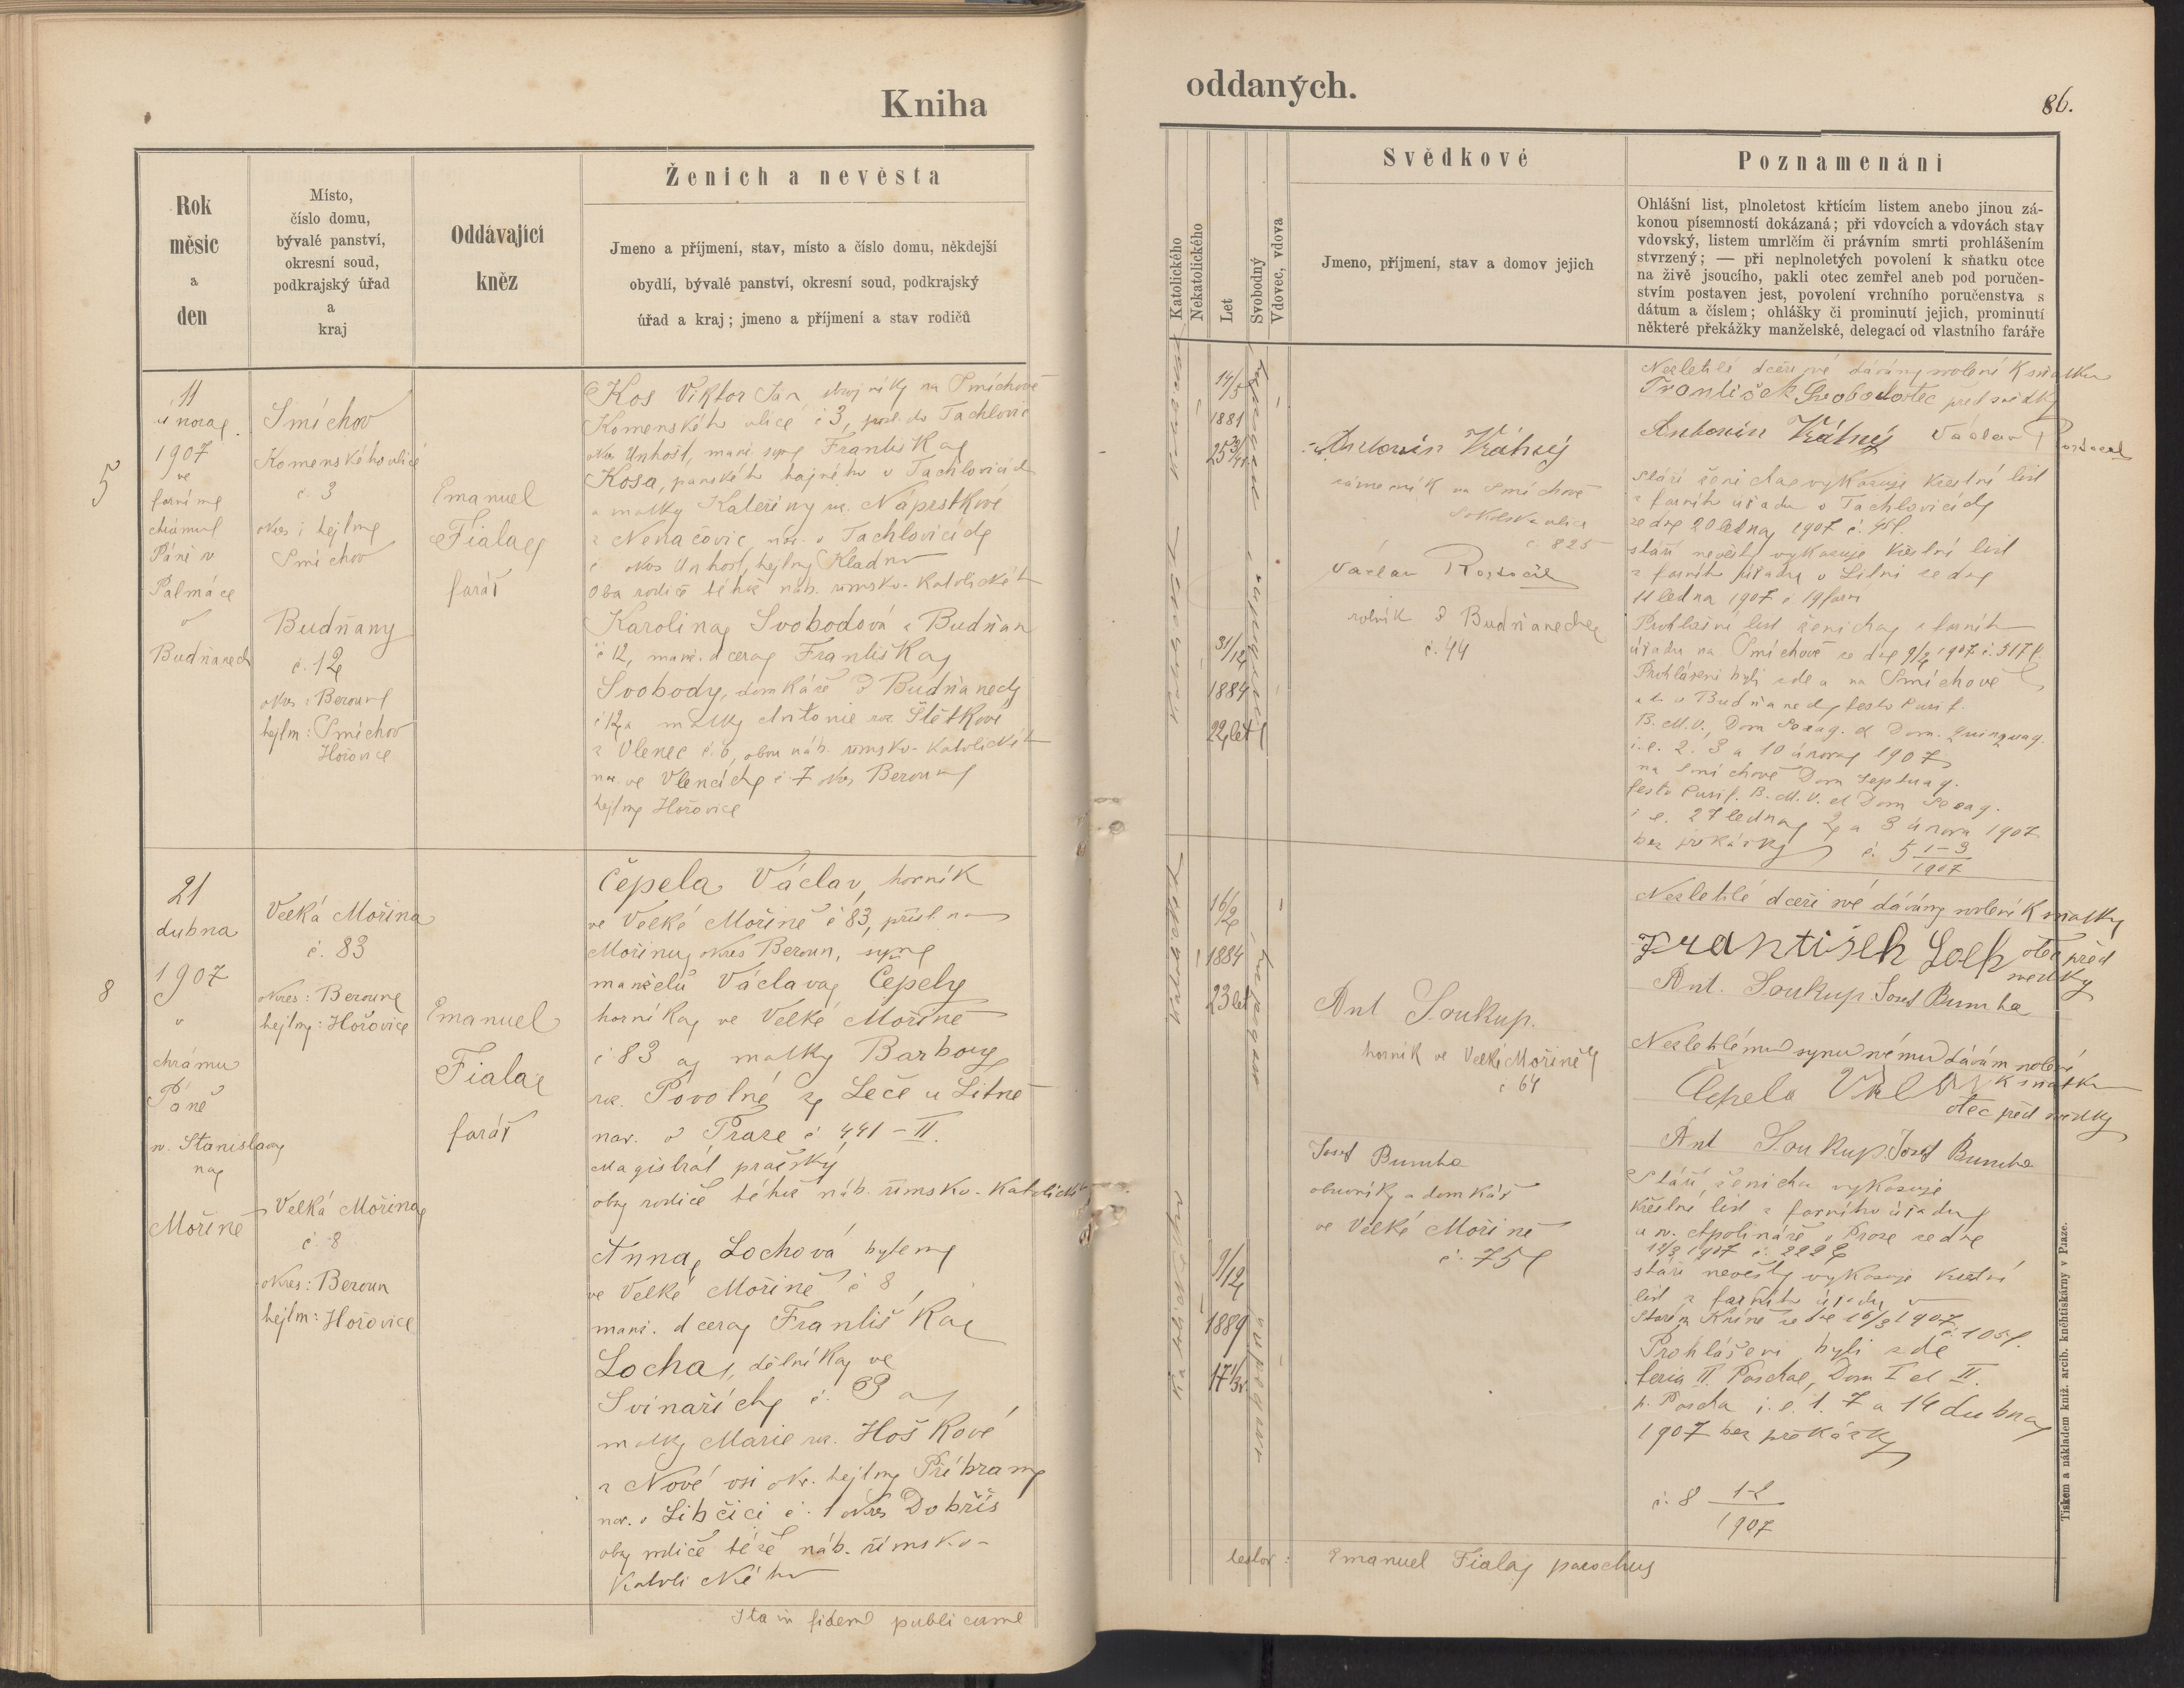 Kniha
oddaných.
86.
Rok
měsíc
a
den
Místo,
číslo domu,
bývalé panství,
okresní soud,
podkrajský úřad
a
kraj
Oddávající
kněz
Ženich a nevěsta
Jmeno a příjmení, stav, místo a číslo domu, někdejší
obydlí, bývalé panství, okresní soud, podkrajský
úřad a kraj; jmeno a příjmení a stav rodičů
Katolického
Nekatolického
Let
Svobodný
Vdovec, vdova
Svědkové
Jmeno, příjmení, stav a domov jejich
Poznamenáni
Ohlášní list, plnoletost křtícím listem anebo jinou zá-
konou písemností dokázaná; při vdovcích a vdovách stav
vdovský, listem umrlčím či právním smrti prohlášením
stvrzený; — při neplnoletých povolení k sňatku otce
na živě jsoucího, pakli otec zemřel aneb pod poručen-
stvím postaven jest, povolení vrchního poručenstva s
dátum a číslem; ohlášky či prominutí jejich, prominutí
některé překážky manželské, delegací od vlastního faráře
5
11
února
1907
ve
farním
chrámu
Páně v
Palmáce
v
Budňanech
Smíchov
Komenského ulice
č. 3
okres i hejtm
Smíchov
Budňany
č. 12
okres: Beroun
hejtm: Smíchov
Hořovice
Emanuel
Fiala
farář
Kos Viktor Jan strojník na Smíchově
Komenského ulice č 3, přísl. do Tachlovic
okr Unhošť, manž. syn Františka
Kosa, panského hajného v Tachlovicích
a matky Kateřiny roz. Náprstkové
z Nenačovic, nar. v Tachlovicích
č okres Unhošť, hejtm Kladno
Oba rodiče téhož náb. římsko-katolického
Karolina Svobodová z Budňan
č 12, manž. dcera Františka
Svobody, domkáře v Budňanech
č 12 a matky Antonie roz Štětkové
z Vlenec č. 6, obou náb. římsko-katolického
nar. ve Vlencích č 7 okres Beroun
hejtm Hořovice
katolického
14/5
1881
25
31/12
1884
22 let
Antonín Krátký
zámečník na Smíchově
Sokolská ulice
č. 825
Václav Roztočil
rolník v Budňanech
č. 44
Nezletilé dceři své dávám svolení k sňatku
František Svoboda otec před svědky
Antonín Krátký Václav Roztočil
Stáří ženicha vykazuje křestní list
z farního úřadu v Tachlovicích
ze dne 20 ledna 1907 č. 45
stáří nevěsty vykazuje křestní list
z farního úřadu v Litni ze dne
11 ledna 1907 č 19 farn
Prohlašní list ženicha z farního
úřadu na Smíchově ze dne 9/2 1907 č. 317
Prohlášeni byli zde a na Smíchově
a to v Budňanech festo Purif.
B. M. V., Dom Sexag. et Dom. Quinquag.
i. e. 2. 3 a 10 února 1907
na Smíchově Dom Septuag.
festo Purif. B. M. V. et Dom Sexag.
i e. 27 ledna 2 a 3 února 1907
bez překážky č. 5 1-3
1907
8
21
dubna
1907
v
chrámu
Páně
sv. Stanislava
na
Mořině
Velká Mořina
č. 83
okres: Beroun
hejtm: Hořovice
Velká Mořina
č. 8
okres: Beroun
hejtm: Hořovice
Emanuel
Fiala
farář
Čepela Václav, horník
ve Velké Mořině č 83, přísl. na
Mořinu, okres Beroun, syn
manželů Václava Čepely
horníka ve Velké Mořině
č 83 a matky Barbory
roz. Povolné ze Leče u Litně
nar. v Praze č 441-II.
Magistrát pražský
oba rodiče téhož náb. římsko-katolického
Anna Lochová bytem
ve Velké Mořině č 8
manž. dcera Františka
Locha, dělníka ve
Svinařích č. 39 a
matky Marie roz. Hoškové
z Nové vsi okr. hejtm Příbram
nar. v Libčici č. 1 okres Dobříš
oba rodiče téže náb. římsko-
katolického
Ita in fidem publicam
katolického
16/2
1884
23 let
9/12
1889
17
Ant Soukup.
horník ve Velké Mořině
č 64
Josef Bumba
obuvník a domkář
ve Velké Mořině
č. 75
Nezletilé dceři své dávám svolení k sňatku
František Loch otec před
svědky
Ant. Soukup. Josef Bumba
Nezletilému synu svému dávám svolení
k sňatku
Čepela Václav
otec před svědky
Ant Soukup. Josef Bumba
Stáří ženicha vykazuje
křestní list z farního úřadu
u sv. Apolináře v Praze ze dne
12/3 1907 č. 222
stáří nevěsty vykazuje křestní
list z farního úřadu v
Starém Kníně ze dne 16/3 1907
č. 105
Prohlášeni byli zde
feria II. Paschae, Dom I et II.
p. Pascha i. e. 1. 7 a 14 dubna
1907 bez překážky
č. 8 1-2
1907
testor: Emanuel Fiala parochus
Tiskem a nákladem kníž. arcib. kněhtiskárny v Praze.